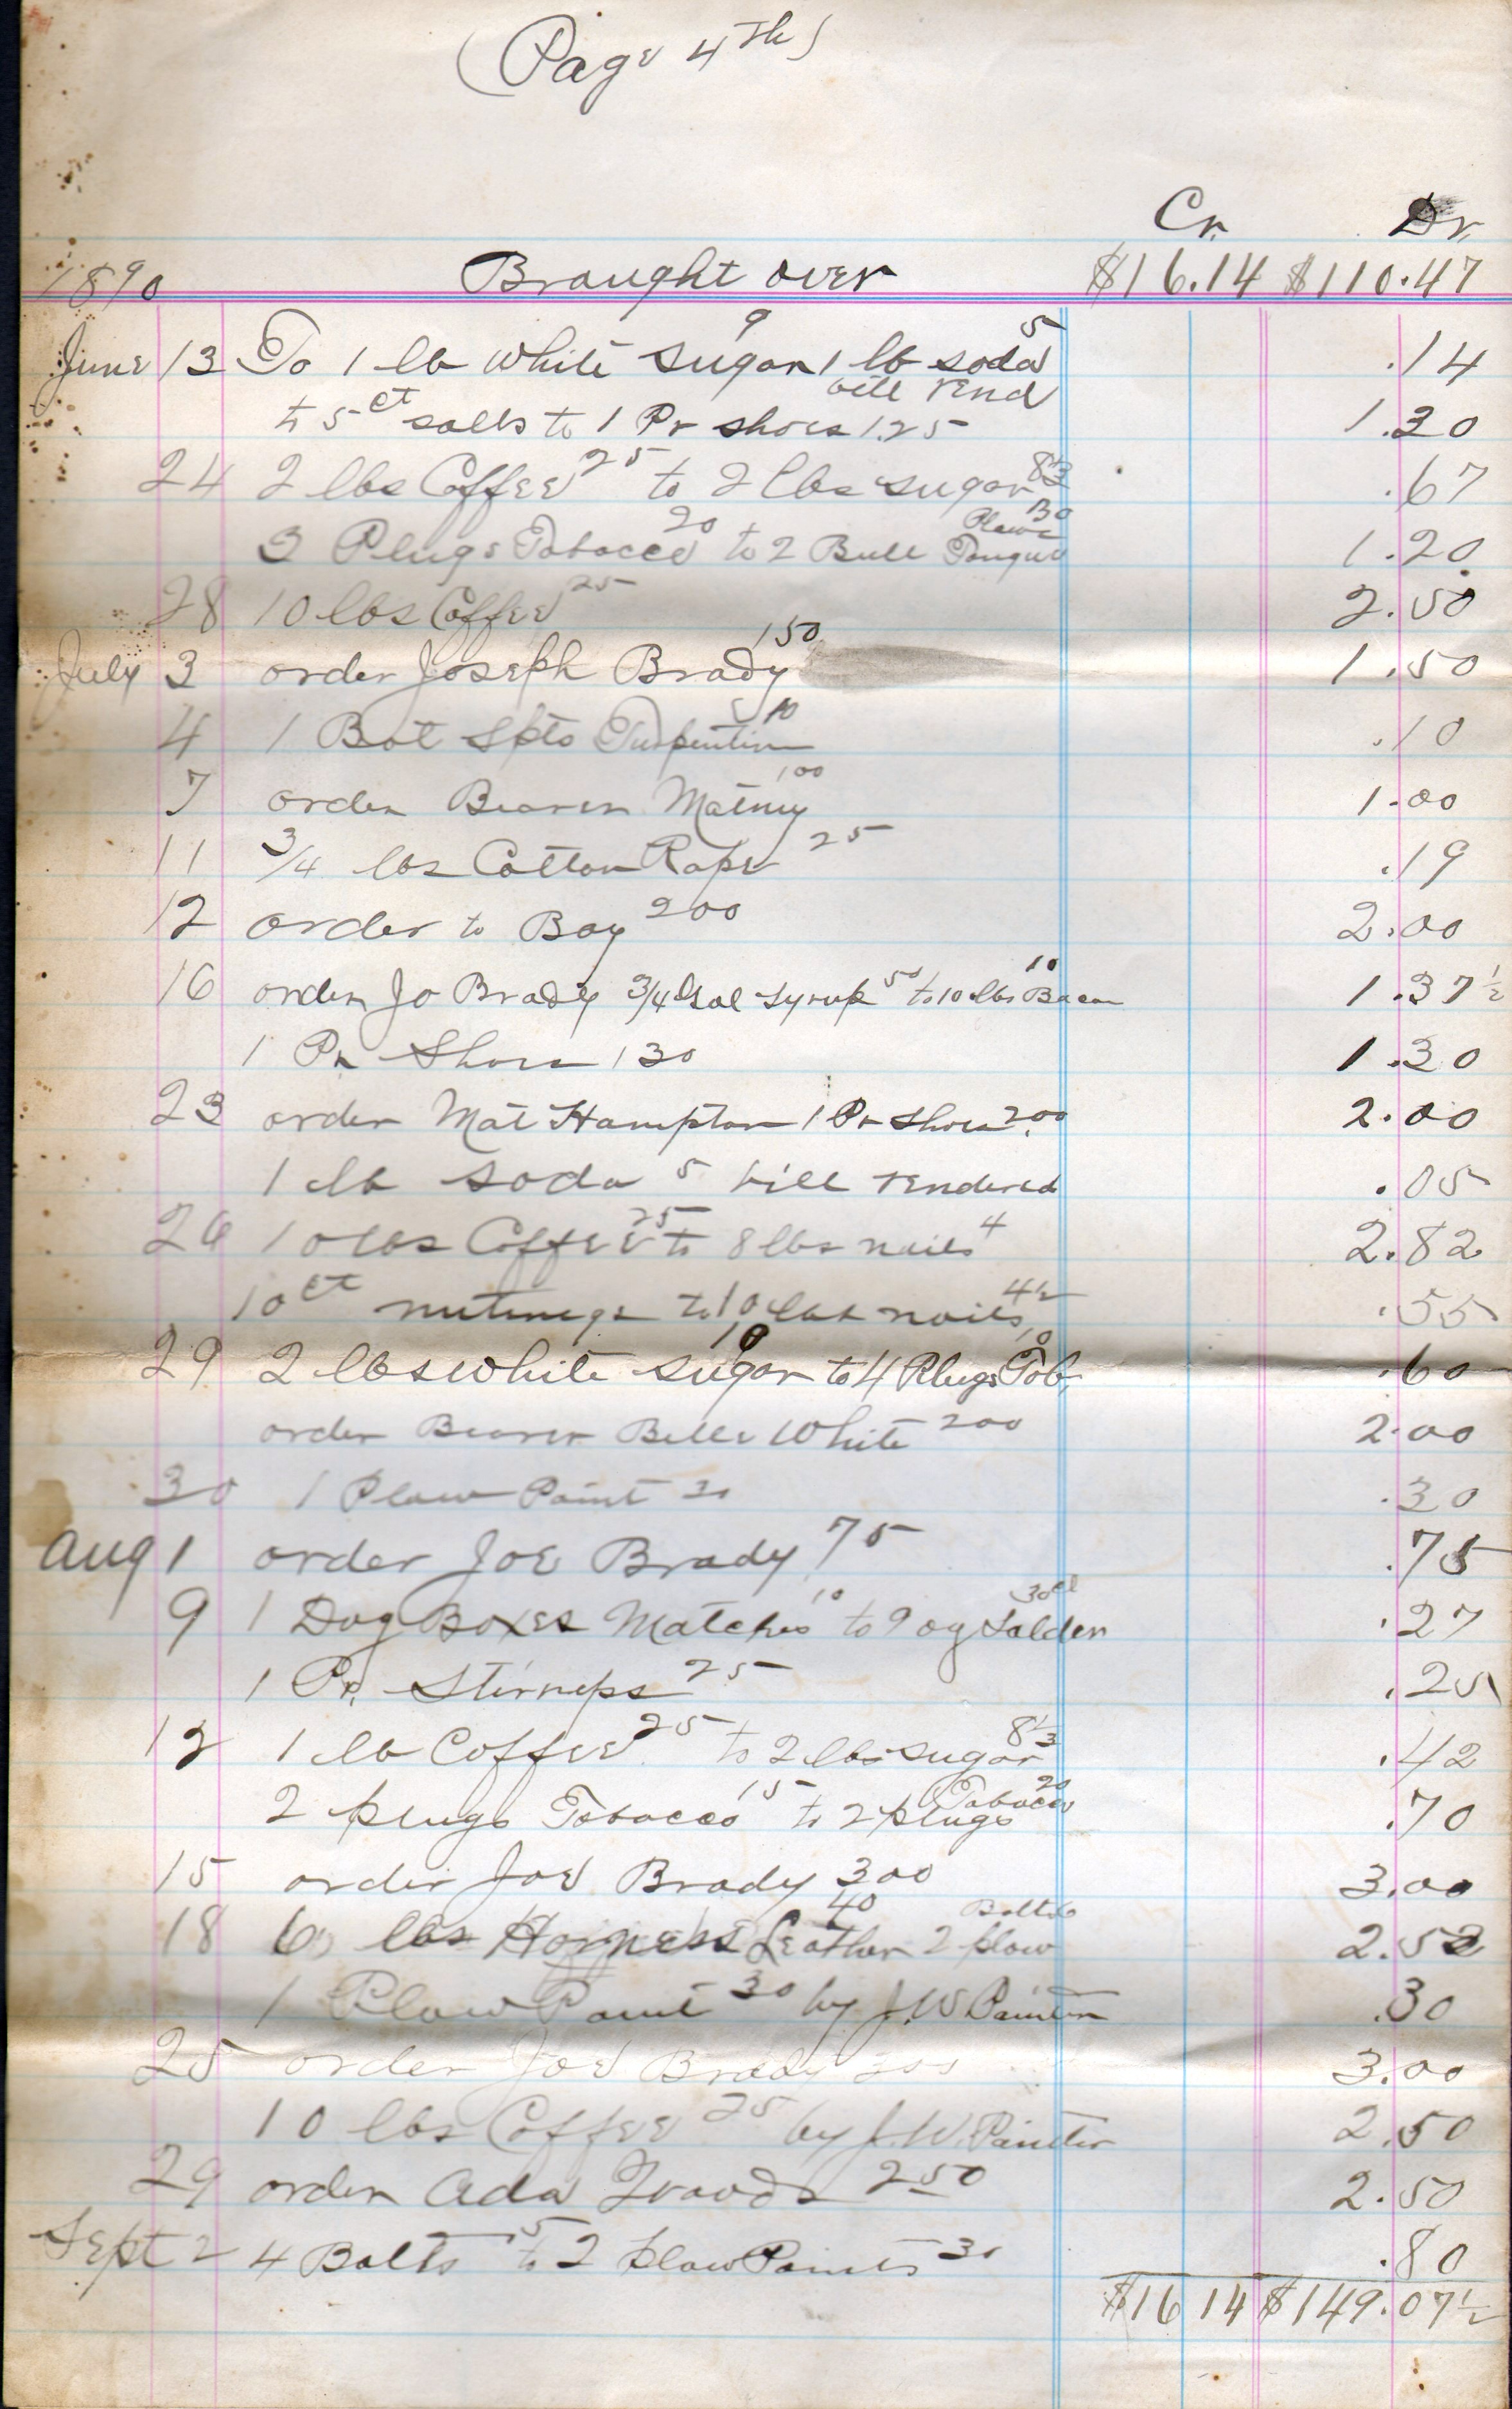 (Page 4th)
Cr. Dr.
1890 Braught over $16.14 $110.47
June 13 To 1 lb white sugar 9 1 lb soda 5 .14
bill rend
to 5 ct salts to 1 Pr shoes 1.25 1.30
24 2 lbs Coffee 25 to 2 lbs sugar 8⅓ .67
3 Plugs Tobacco 20 to 2 Bull Tongue Plows 30 1.20
28 10 lbs Coffee 25 2.50
July 3 order Joseph Brady 150 1.50
4 1 Bot Spts Turpentine 10 .10
7 order Beaver Matney 100 1.00
11 3/4 lbs Cotton Rope 25 .19
12 order to Boy 200 2.00
16 order Jo Brady 3/4 Gal Syrup 50 to 10 lbs Bacon 10 1.37½
1 Pr Shoes 130 1.30
23 order Mat Hampton 1 Pr Shoes 200 2.00
1 lb soda 5 bill rendered .05
26 10 lbs Coffee 25 to 8 lbs nails 4 2.82
10 ct nutmegs to 10 lbs nails 4½ .55
29 2 lbs white sugar 10 to 4 Plugs Tob. 10 .60
order Beaver Belle White 200 2.00
30 1 Plow Point 30 .30
Aug 1 order Joe Brady 75 .75
9 1 Dog Boxes Matches 10 to 9 og Solder 30ct .27
1 Pr. Stirneps 25 .25
12 1 lb Coffee 25 to 2 lbs sugar 8⅓ .42
2 plugs Tobacco 15 to 2 plugs Tobacco 20 .70
15 order Joe Brady 300 3.00
18 6 lbs Harness Leather 40 2 plow Bolts 2.52
1 Plow Point 30 by J.W. Painter .30
25 order Joe Brady 300 3.00
10 lbs Coffee 25 by J.W. Painter 2.50
29 order Ada Woods 250 2.50
Sept 2 4 Bolts 5 to 2 plow Points 30 .80
$16 14 $149.07½